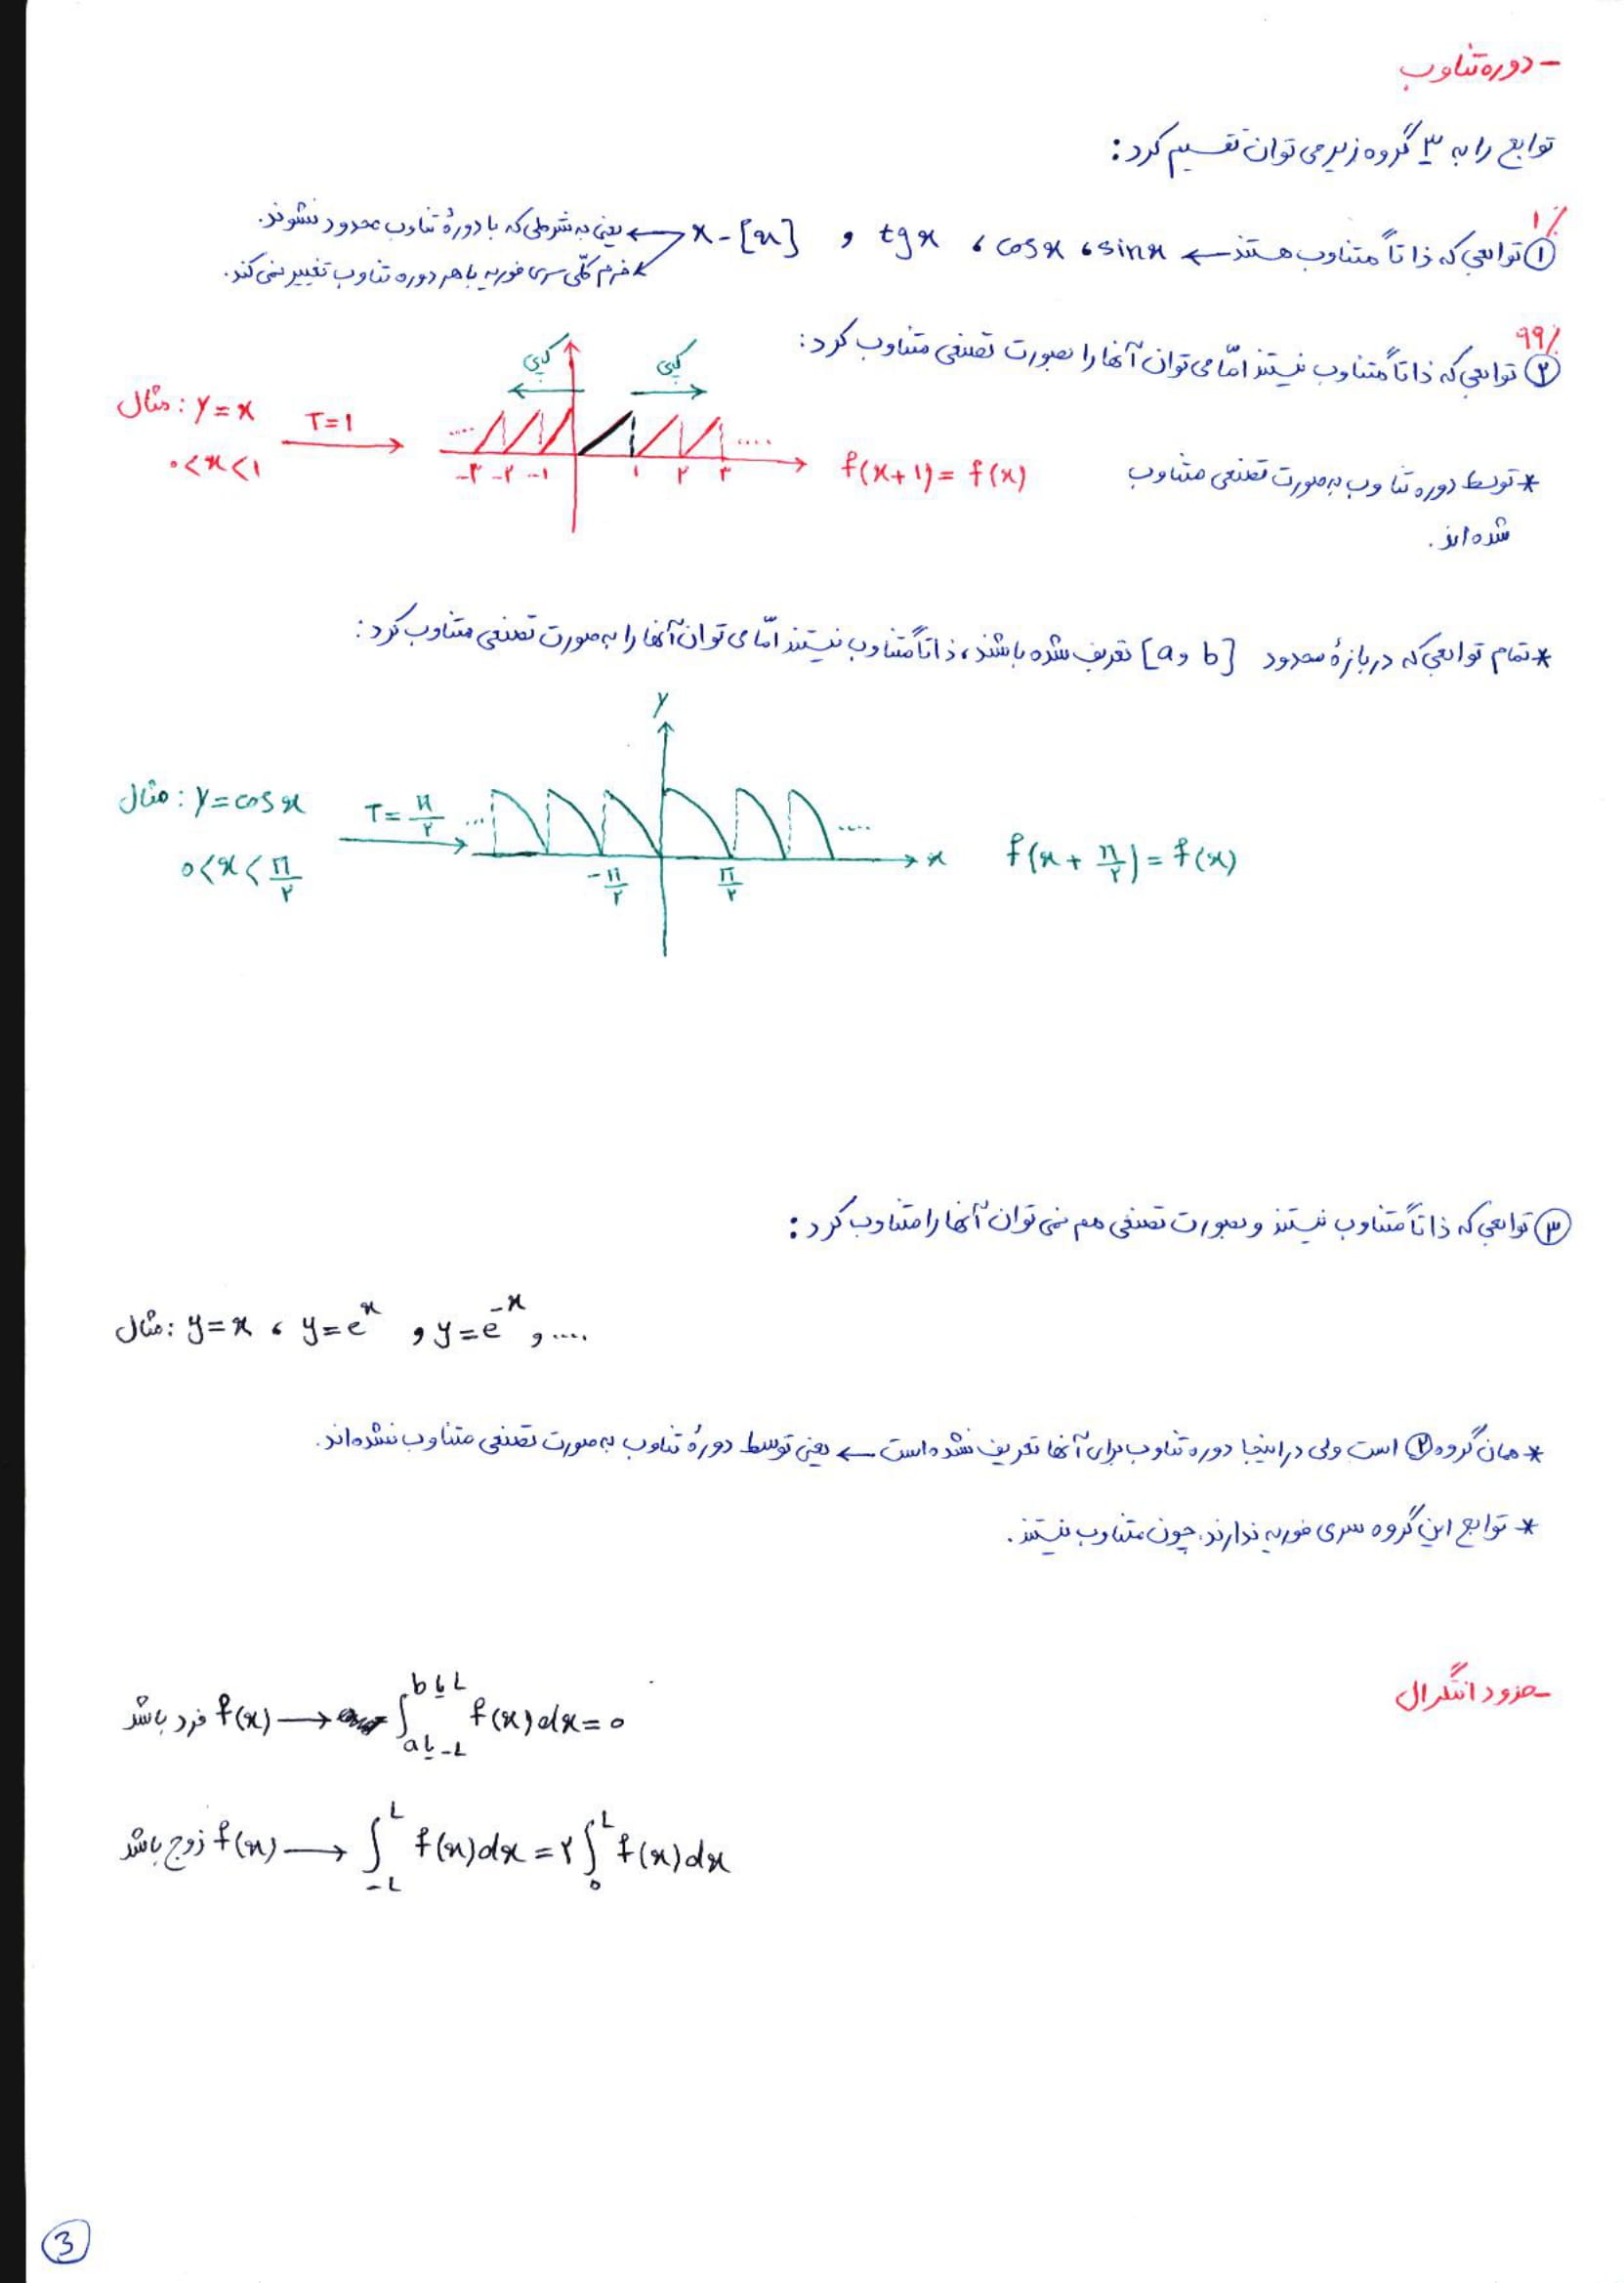 - دوره تناوب
توابع را به ۳ گروه زیر می توان تقسیم کرد:
۱%
① توابعی که ذاتاً متناوب هستند ← sinx ، cosx ، tgx و x-[x] ← یعنی به شرطی که با دورهٔ تناوب محدود نشوند.
فرم کلّی سری فوریه با هر دوره تناوب تغییر نمی کند.
۹۹%
② توابعی که ذاتاً متناوب نیستند امّا می توان آنها را بصورت تصنعی متناوب کرد:
کپی کپی
مثال: y=x T=1
۰<x<۱
.... -۳ -۲ -۱ ۱ ۲ ۳ ....
f(x+1)=f(x)
* توسط دوره تناوب به صورت تصنعی متناوب
شده اند.
* تمام توابعی که در بازهٔ محدود [a و b] تعریف شده باشند، ذاتاً متناوب نیستند امّا می توان آنها را به صورت تصنعی متناوب کرد:
y
مثال: y=cosx T=π/۲ ... .... x f(x+π/۲)=f(x)
0<x<π/۲ -π/۲ π/۲
③ توابعی که ذاتاً متناوب نیستند و بصورت تصنعی هم نمی توان آنها را متناوب کرد:
مثال: y=x ، y=eˣ و y=e⁻ˣ و ....
* همان گروه ② است ولی در اینجا دوره تناوب برای آنها تعریف نشده است ← یعنی توسط دورهٔ تناوب به صورت تصنعی متناوب نشده اند.
* توابع این گروه سری فوریه ندارند، چون متناوب نیستند.
- حدود انتگرال
f(x) فرد باشد → ∫_{a یا -L}^{b یا L} f(x)dx=0
f(x) زوج باشد → ∫_{-L}^{L} f(x)dx=۲∫_{0}^{L} f(x)dx
3